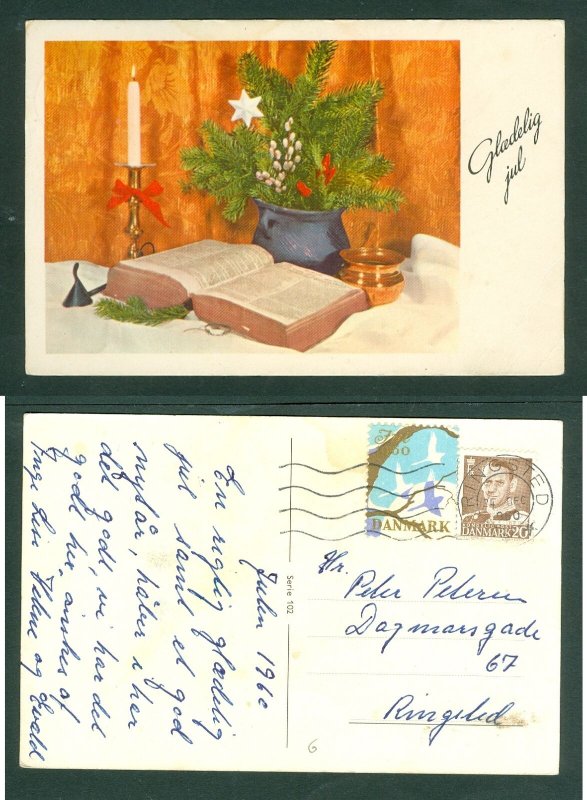 Glædelig
jul
Julen 1960
En rigtig glædelig
jul samt et god
nytår, håber i har
det godt, vi har det
godt her, ønskes af
Inge Lise Helene og Evald
Serie 102
Jul
1960
DANMARK
RINGSTED
DEC
DANMARK 20
Hr.
Peter Petersen
Dagmarsgade
67
Ringsted
6